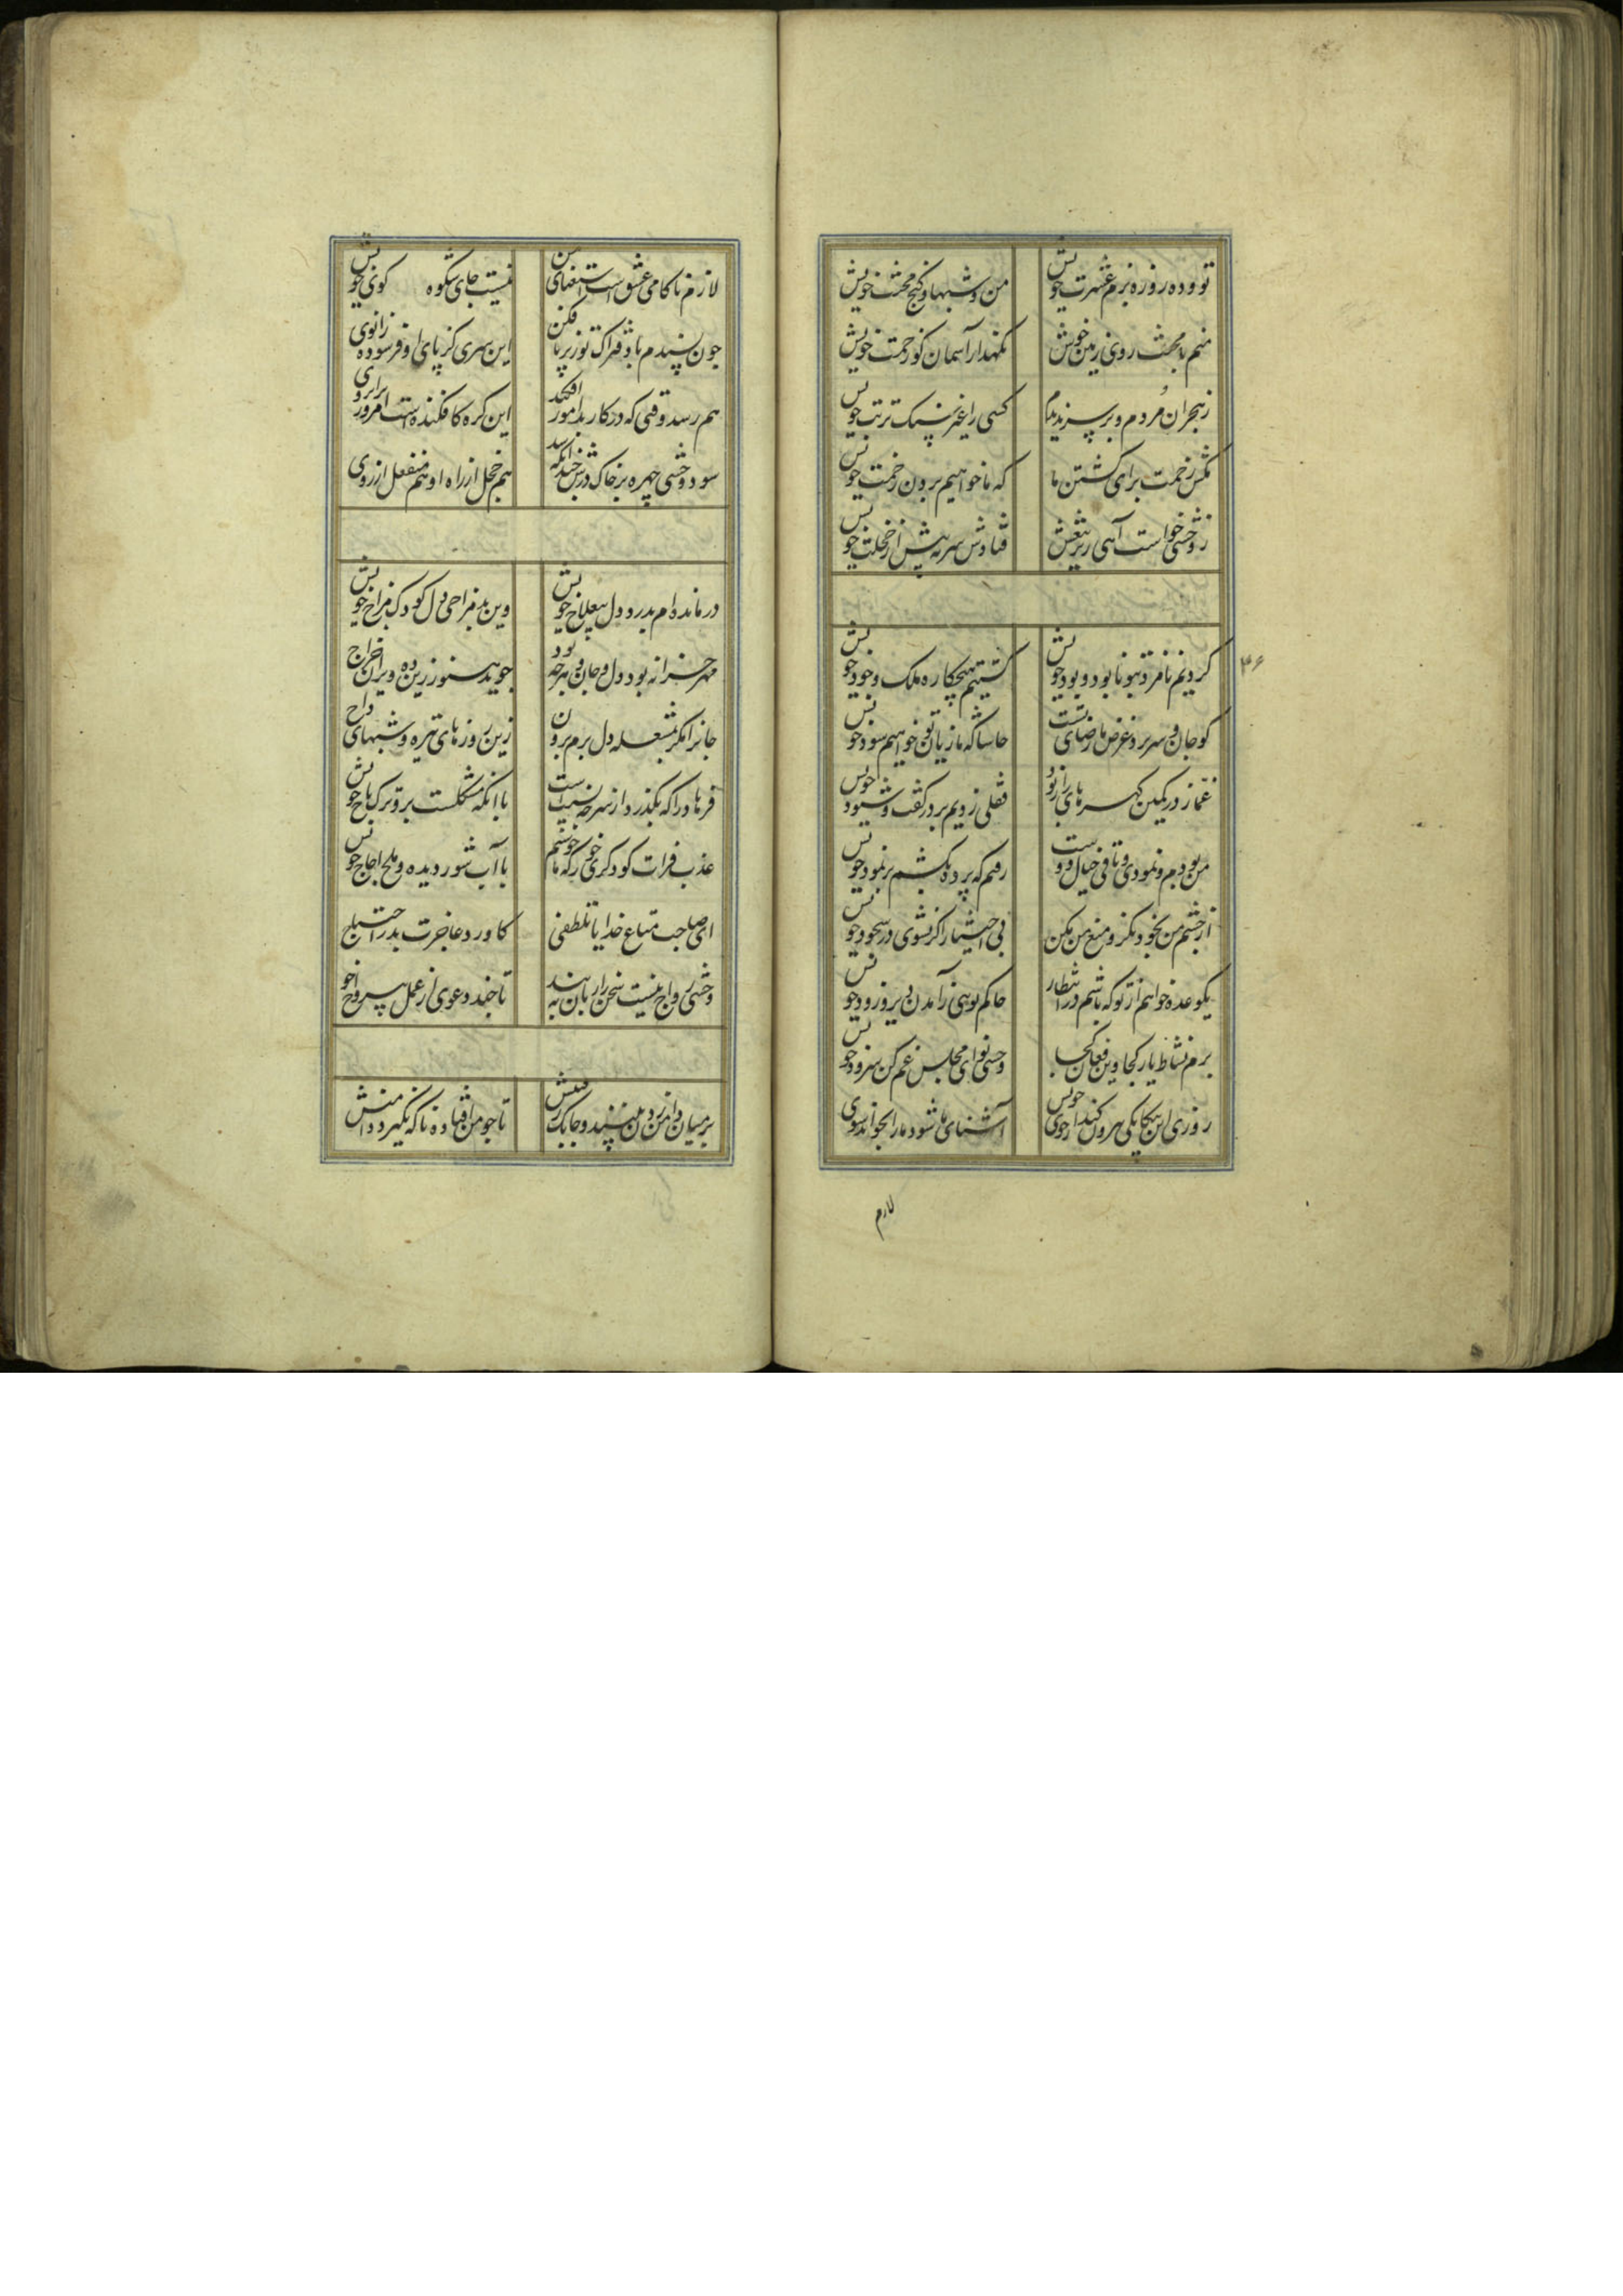 تو و ده روزه بزم عشرت خویش
من و شبها و کنج محنت خویش
منم با محنت روی زمین خویش
نکهدار آسمان کو زحمت خویش
ز هجران مردم و بر سر ندیدم
کسی را غیر سنک تربت خویش
مکش زحمت برای کشتن ما
که ما خواهیم بردن زحمت خویش
ز وحشی خواست آهی
فتادش سر به پیش از خجلت خویش
۳۶
کردیم نامزد بتو نابود و بود خویش
کشتیم هیچکاره ملک وجود خویش
کو جان و سر برو غرض ما رضای تست
حاشا که ما زیان تو خواهیم سود خویش
غماز در کمین کهرهای راز بود
قفلی زدیم بر در کفت و شنود خویش
من بودم و نمودی و باقی خیال دوست
رفتم که پرده بکشم بر نمود خویش
از چشم من بخود نکر و منع من مکن
بی اختیار اکر نشوی در سجود خویش
یک وعده خواهم از تو که باشم در انتظار
حاکم تویی در آمدن دیر و زود خویش
بزم نشاط یار کجا وین فغان کجا
وحشی نوای مجلس غم کن سرود خویش
روزی این بیکانکی بیرون کند از خوی خویش
آشنای ما شود ما را بخواند سوی
لازم
لازم ناکامی عشق است استغنای حسن
نیست جای شکوه کوی خویش
چون پسندم باز فتراک تو زیر پا فکن
این سری کز پای او فرسوده زانوی
هم رسد وقتی که در کار بد آموز افکند
این کره کافکنده است امروز بر ابروی
سود وحشی چهره بر خاک درش چندانکه شد
هم خجل از راه او هم منفعل از روی
درمانده‌ام بدرد دل بیعلاج خویش
وین بد مزاجی دل کودک مزاج خویش
مهر خزانه بود دل و جان و هر چه بود
جوید هنوز زین ده ویران خراج
جانرا مکر بمشعله دل برم برون
زین روزهای تیره و شبهای داج
فرما در آ که بکذرد از سر چه شد است
با آنکه مشکلست بر تو ترک باج خویش
عذب فرات کو دکری خور که ما خوشیم
با آب شور دیده و ملح اجاج خویش
ای صاحب متاع خدا را تلطفی
کاورد عاجزت بدر احتیاج
وحشی رواج نیست سخن را زبان به بند
تا چند دعوی از عمل بیرواج خو
بر میان دامن زدن بینند و چابک رفتنش
تا چو من افتاده ناکه بکیرد دامنش